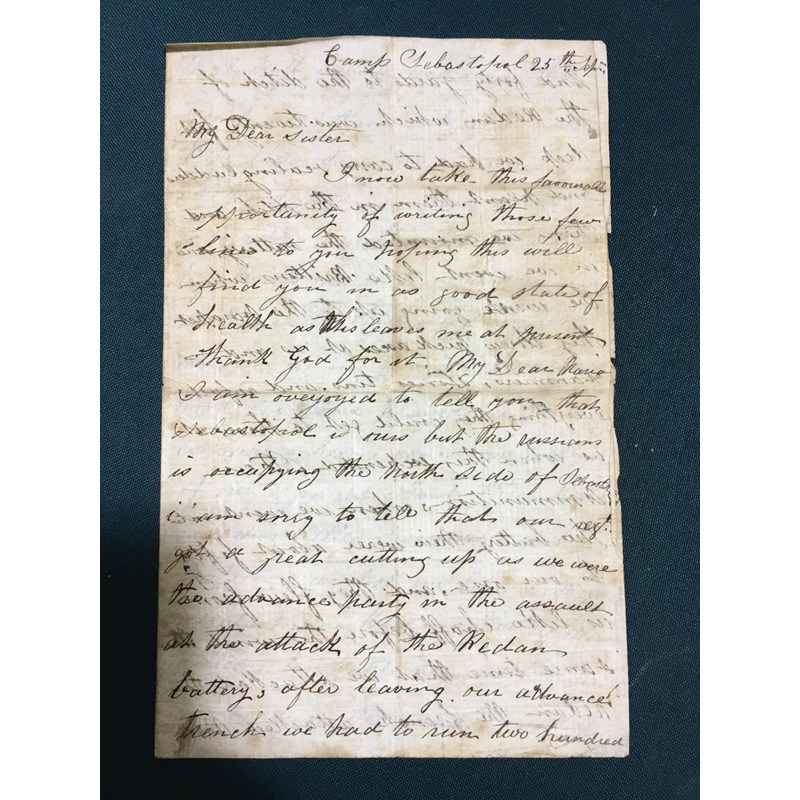 Camp Sebastopol 25th Sept
My Dear Sister
I now take this favourable
oppertunity of writing those few
lines to you hoping this will
find you in as good state of
Health as this leaves me at present
thank God for it My Dear Maria
I am overjoyed to tell you that
Sebastopol is ours but the russians
is occupying the North Side of Sebastopol
i am sorry to tell that our regt.
got a great cutting up as we were
the advance party in the assault
at the attack of the Redan
battery, after leaving our advanced
trench we had to run two hundred